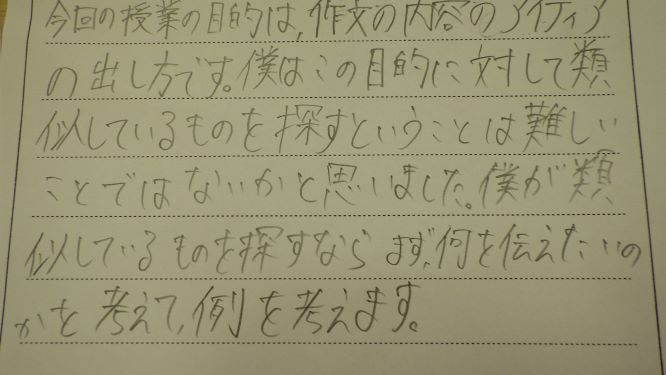 今回の授業の目的は、作文の内容のアイディア
の出し方です。僕はこの目的に対して類
似しているものを探すということは難しい
ことではないかと思いました。僕が類
似しているものを探すなら まず、何を伝えたいの
かを考えて、例を考えます。